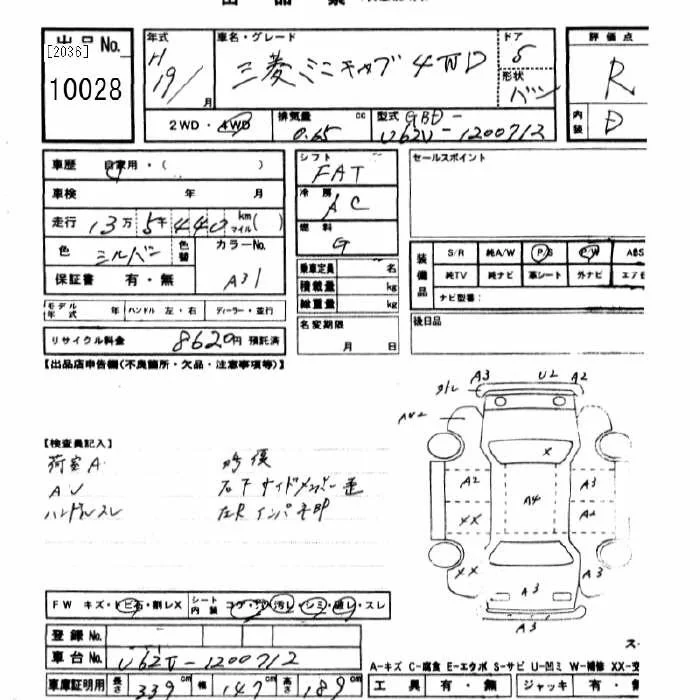 出品票
出品No. [2036]
10028
年式 H19/ 月
車名・グレード 三菱ミニキャブ 4WD
ドア 5
形状 バン
評価点 R
内装 D
2WD・4WD
排気量 0.65 cc
型式 GBD-U62V-1200712
車歴 自家用・( )
車検 年 月
走行 13万5千440 km マイル( )
色 シルバー 色替 カラーNo. A31
保証書 有・無
モデル年式 年 ハンドル 左・右 ディーラー・並行
リサイクル料金 8620円 預託済
シフト FAT
冷房 AC
燃料 G
乗車定員 名
積載量 kg
総重量 kg
名変期限 月 日
セールスポイント
装備品 S/R 純A/W P/S P/W ABS
純TV 純ナビ 革シート 外ナビ エアB
ナビ型番:
後日品
【出品店申告欄(不良箇所・欠品・注意事項等)】
A3 U2 A2
A3
A2 A4 A3
XX A2
XX A3 A3
A3
【検査員記入】
荷室A
ハンドルスレ
FW キズ・トビ石・割レX シート内装 コゲ・穴・汚レ・シミ・破レ・スレ
登録No.
車台No. U62V-1200712
車庫証明用 長さ 339 cm 幅 147 cm 高さ 189 cm
A-キズ C-腐食 E-エクボ S-サビ U-凹ミ W-補修 XX-交
工具 有・無 ジャッキ 有・無